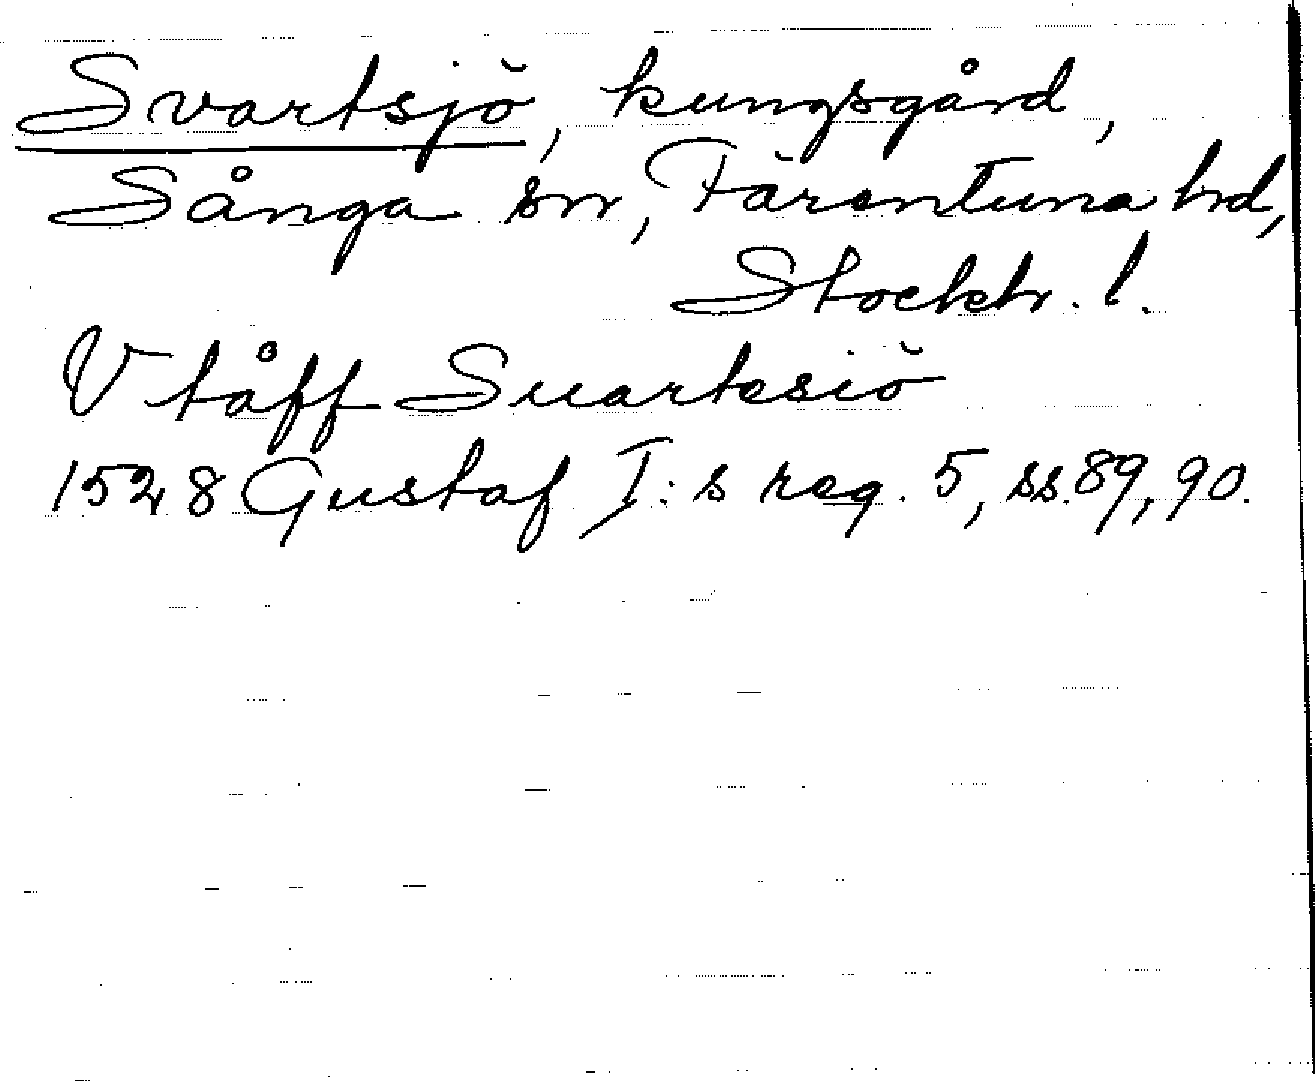 Svartsjö, kungsgård,
Sånga sn, Färentuna hd,
Stockh. l.
V tåff Suartesiö
1528 Gustaf I:s reg. 5, ss. 89, 90.